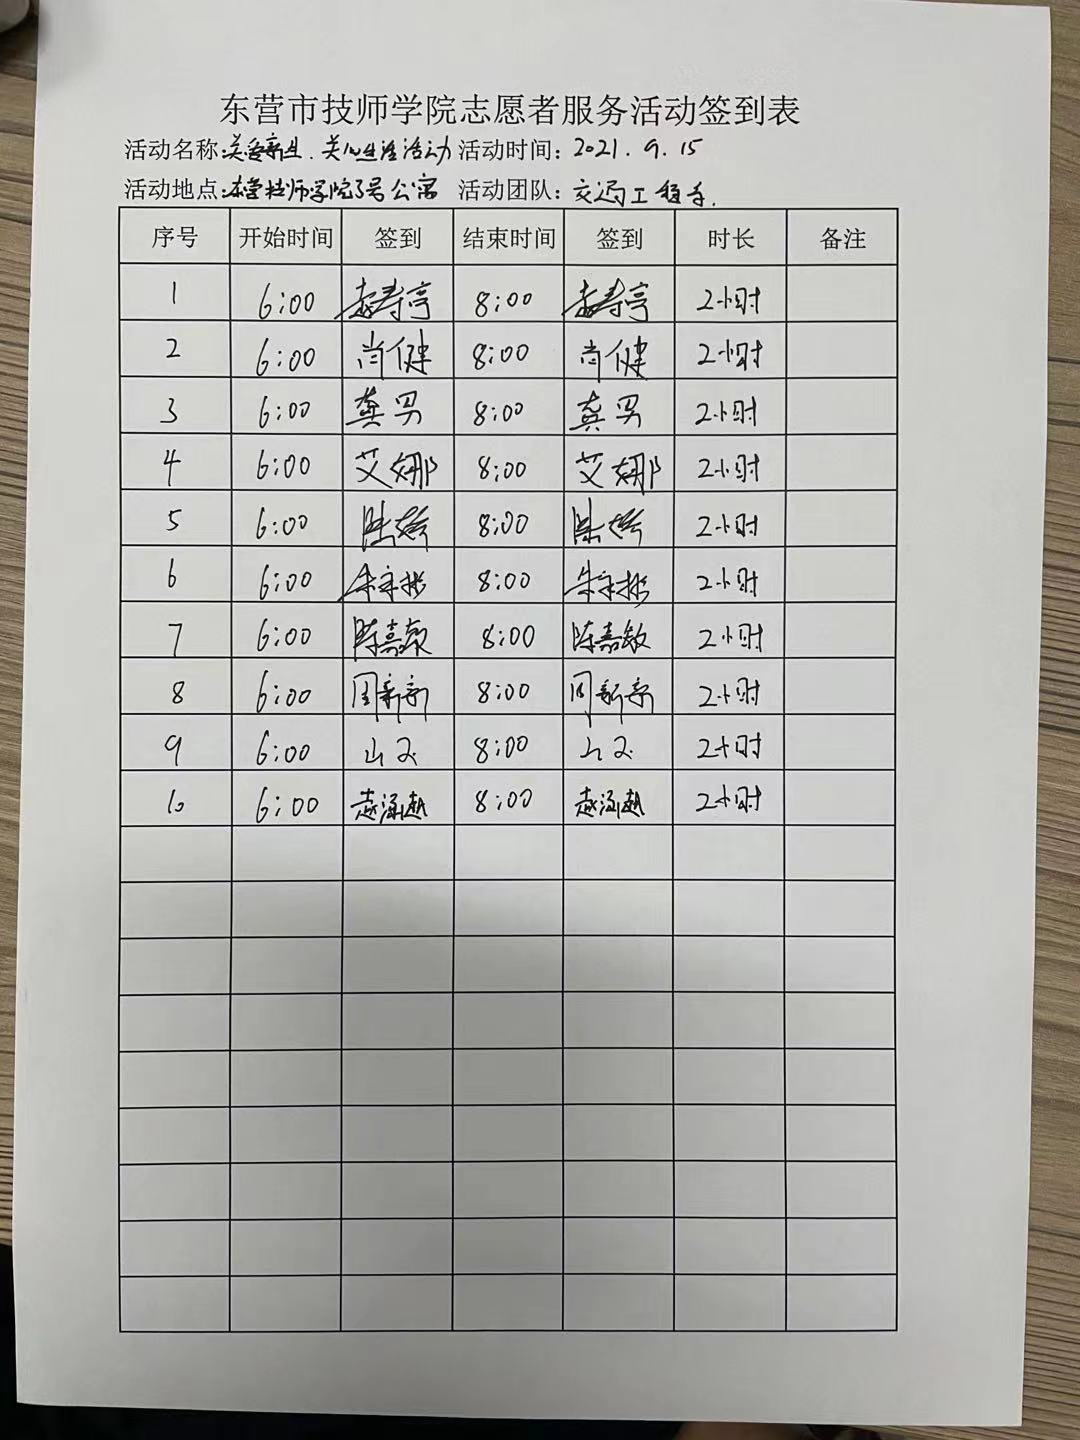 东营市技师学院志愿者服务活动签到表
活动名称:关爱新生.关心生活活动 活动时间:2021.9.15
活动地点:东营技师学院3号公寓 活动团队:交通工程系.
序号 开始时间 签到 结束时间 签到 时长 备注
1 6:00 赵寿亭 8:00 赵寿亭 2小时
2 6:00 尚健 8:00 尚健 2小时
3 6:00 龚男 8:00 龚男 2小时
4 6:00 艾娜 8:00 艾娜 2小时
5 6:00 8:00 2小时
6 6:00 8:00 2小时
7 6:00 陈嘉敏 8:00 陈嘉敏 2小时
8 6:00 周新新 8:00 周新新 2小时
9 6:00 8:00 2小时
10 6:00 8:00 2小时